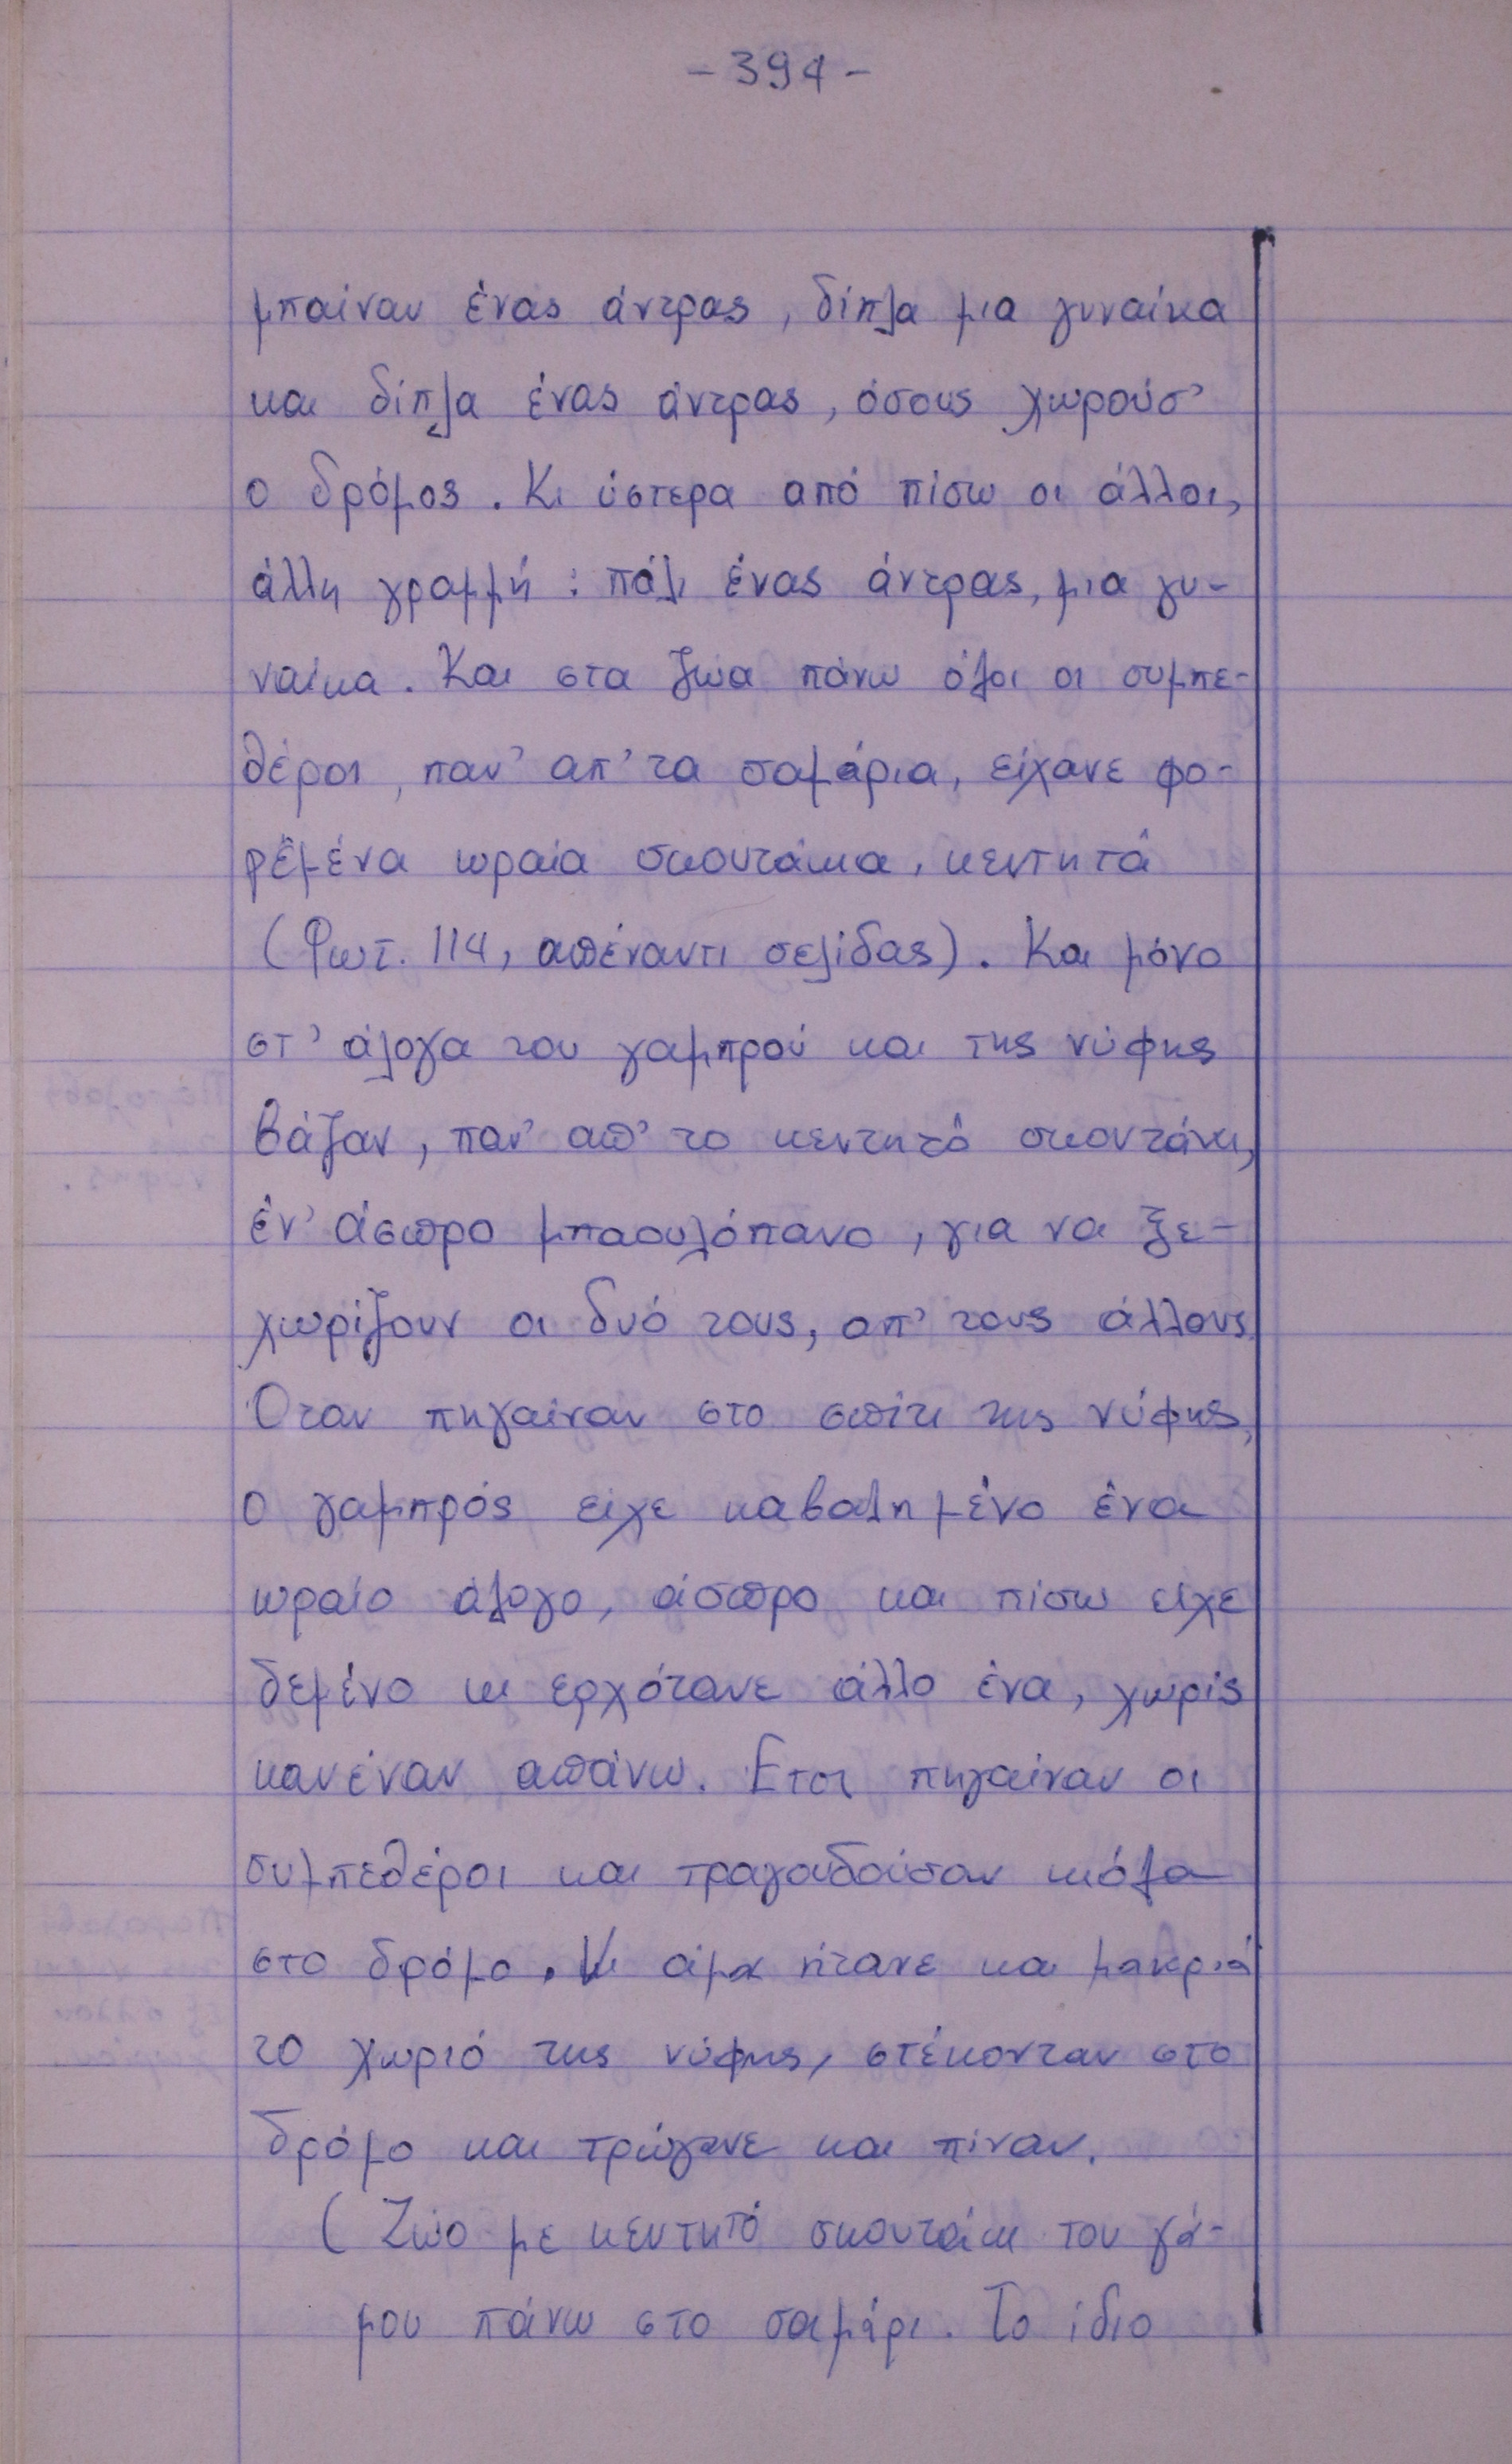 - 394 -
μπαίναν ένας άντρας, δίπλα μια γυναίκα
και δίπλα ένας άντρας, όσους χωρούσ'
ο δρόμος. Κι ύστερα από πίσω οι άλλοι,
άλλη γραμμή: πάλι ένας άντρας, μια γυ-
ναίκα. Και στα ζώα πάνω όλοι οι συμπε-
θέροι, παν' απ' τα σαμάρια, είχανε φο-
ρεμένα ωραία σκουτάκια, κεντητά
(Φωτ. 114, απέναντι σελίδας). Και μόνο
στ' άλογα του γαμπρού και της νύφης
βάζαν, παν' απ' το κεντητό σκουτάκι,
έν' άσπρο μπαουλόπανο, για να ξε-
χωρίζουν οι δυό τους, απ' τους άλλους.
Όταν πηγαίναν στο σπίτι της νύφης,
ο γαμπρός είχε καβαλημένο ένα
ωραίο άλογο, άσπρο και πίσω είχε
δεμένο κι ερχότανε άλλο ένα, χωρίς
κανέναν απάνω. Ετσι πηγαίναν οι
συμπεθέροι και τραγουδούσαν κιόλα
στο δρόμο. Κι άμα ήτανε και μακριά
το χωριό της νύφης, στέκονταν στο
δρόμο και τρώγανε και πίναν.
(Ζώο με κεντητό σκουτάκι του γά-
μου πάνω στο σαμάρι. Το ίδιο